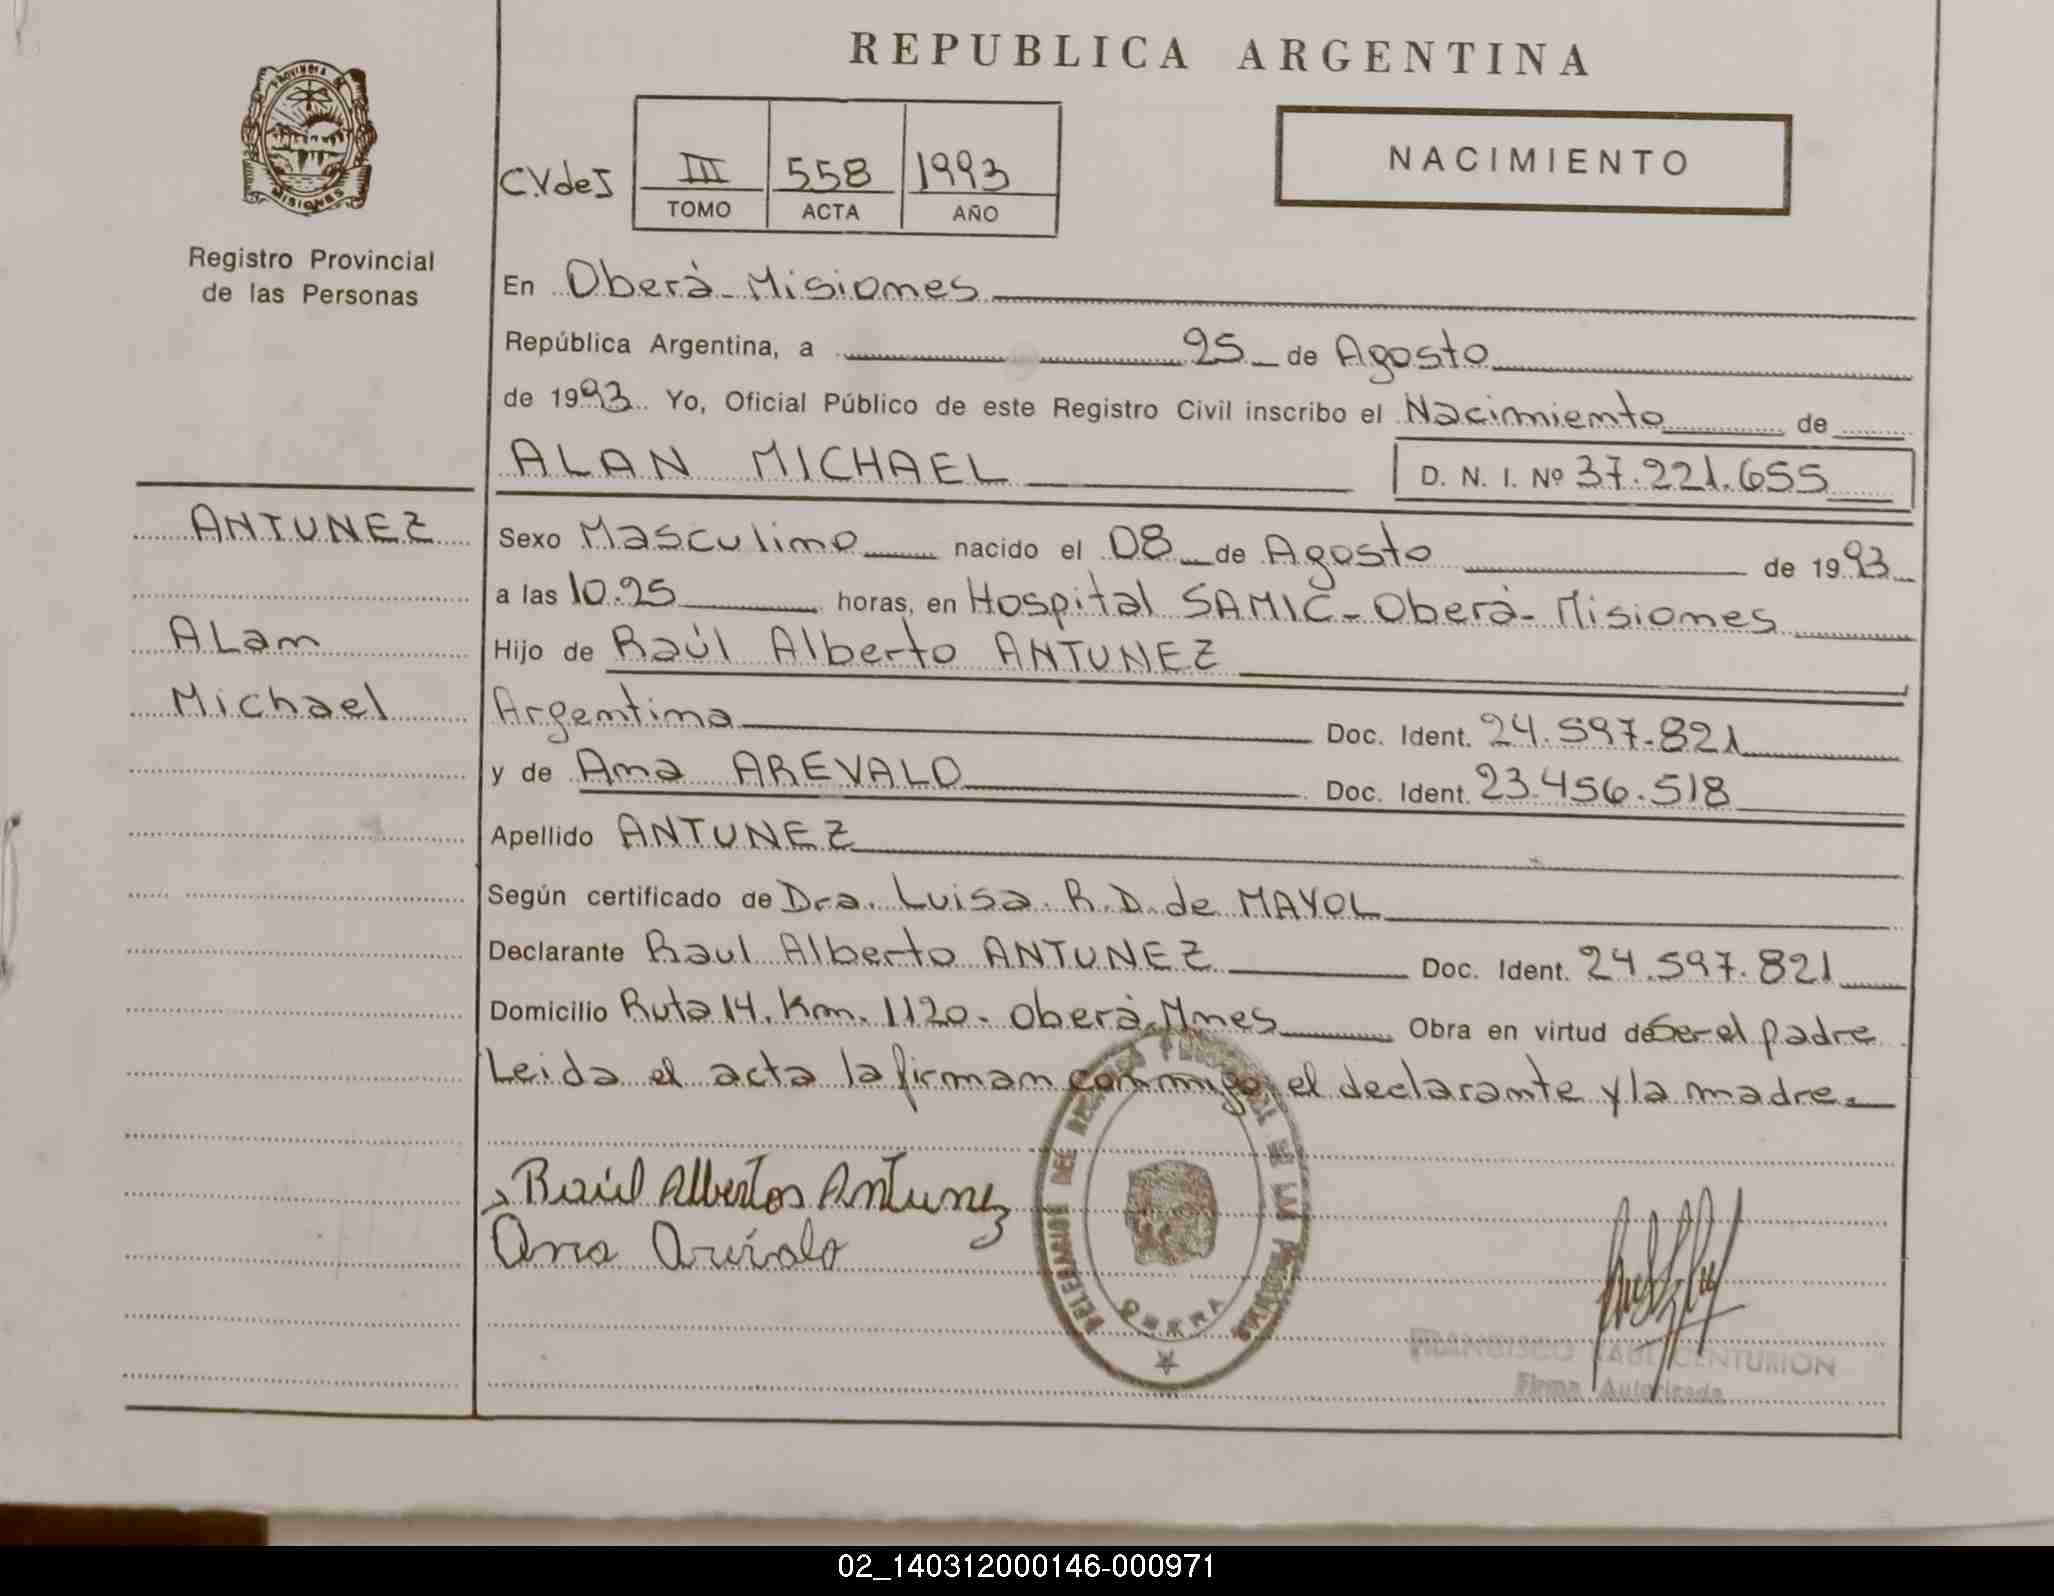 REPUBLICA ARGENTINA
PROVINCIA DE
MISIONES
Registro Provincial
de las Personas
C.V.deI III 558 1993
TOMO ACTA AÑO
NACIMIENTO
En Oberá - Misiones
República Argentina, a 25 de Agosto
de 1993. Yo, Oficial Público de este Registro Civil inscribo el Nacimiento de
ALAN MICHAEL D. N. I. Nº 37.221.655
ANTUNEZ
ALan
Michael
Sexo Masculino nacido el 08 de Agosto de 1993
a las 10.25 horas, en Hospital SAMIC - Oberá - Misiones
Hijo de Raúl Alberto ANTUNEZ
Argentina Doc. Ident. 24.597.821
y de Ana AREVALO Doc. Ident. 23.456.518
Apellido ANTUNEZ
Según certificado de Dra. Luisa R. D. de MAYOL
Declarante Raul Alberto ANTUNEZ Doc. Ident. 24.597.821
Domicilio Ruta 14. Km. 1120. Oberá, Mnes Obra en virtud de Ser el padre
Leida el acta la firman conmigo, el declarante y la madre.
Raúl Albertos Antunez
Ana Arévalo
OBERA
CENTURION
Firma Autorizada
02_140312000146-000971